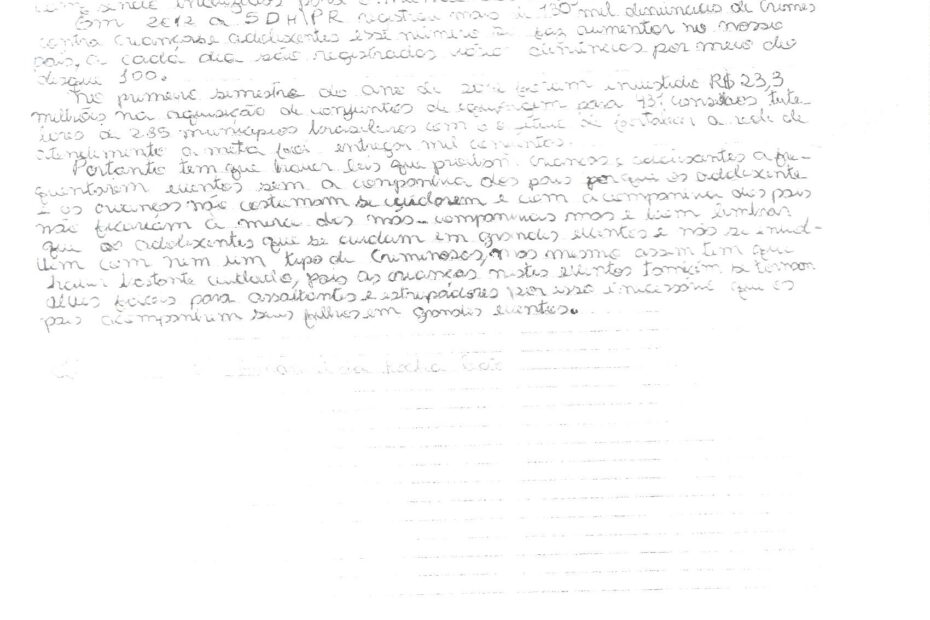 Em 2012 a SDH/PR mais de 130 mil denúncias de crimes
contra crianças e adolescentes esse número só faz aumentar no nosso
país, a cada dia são registrados denúncias por meio do
disque 100.
No primeiro semestre do ano de foram investido R$ 23,3
milhões na aquisição de conjuntos de para
de 285 municípios brasileiros com o de fortalecer a rede de
atendimento a meta foi entregar mil conjuntos.
Portanto tem que haver leis que crianças e adolescentes a fre-
quentarem eventos sem a companhia dos pais por que os adolescente
e as crianças não costumam se cuidarem e com a companhia dos pais
não ficariam a merce das más companhias mas é bem lembrar
que os adolescentes que se cuidam em grandes eventos e não se
com nem um tipo de criminosos, mas mesmo assim tem que
haver bastante cuidado, pois as crianças nestes eventos também se tornam
alvos faceis para assaitantes e estrupadores por isso é que os
pais acompanhem seus filhos em grandes eventos.